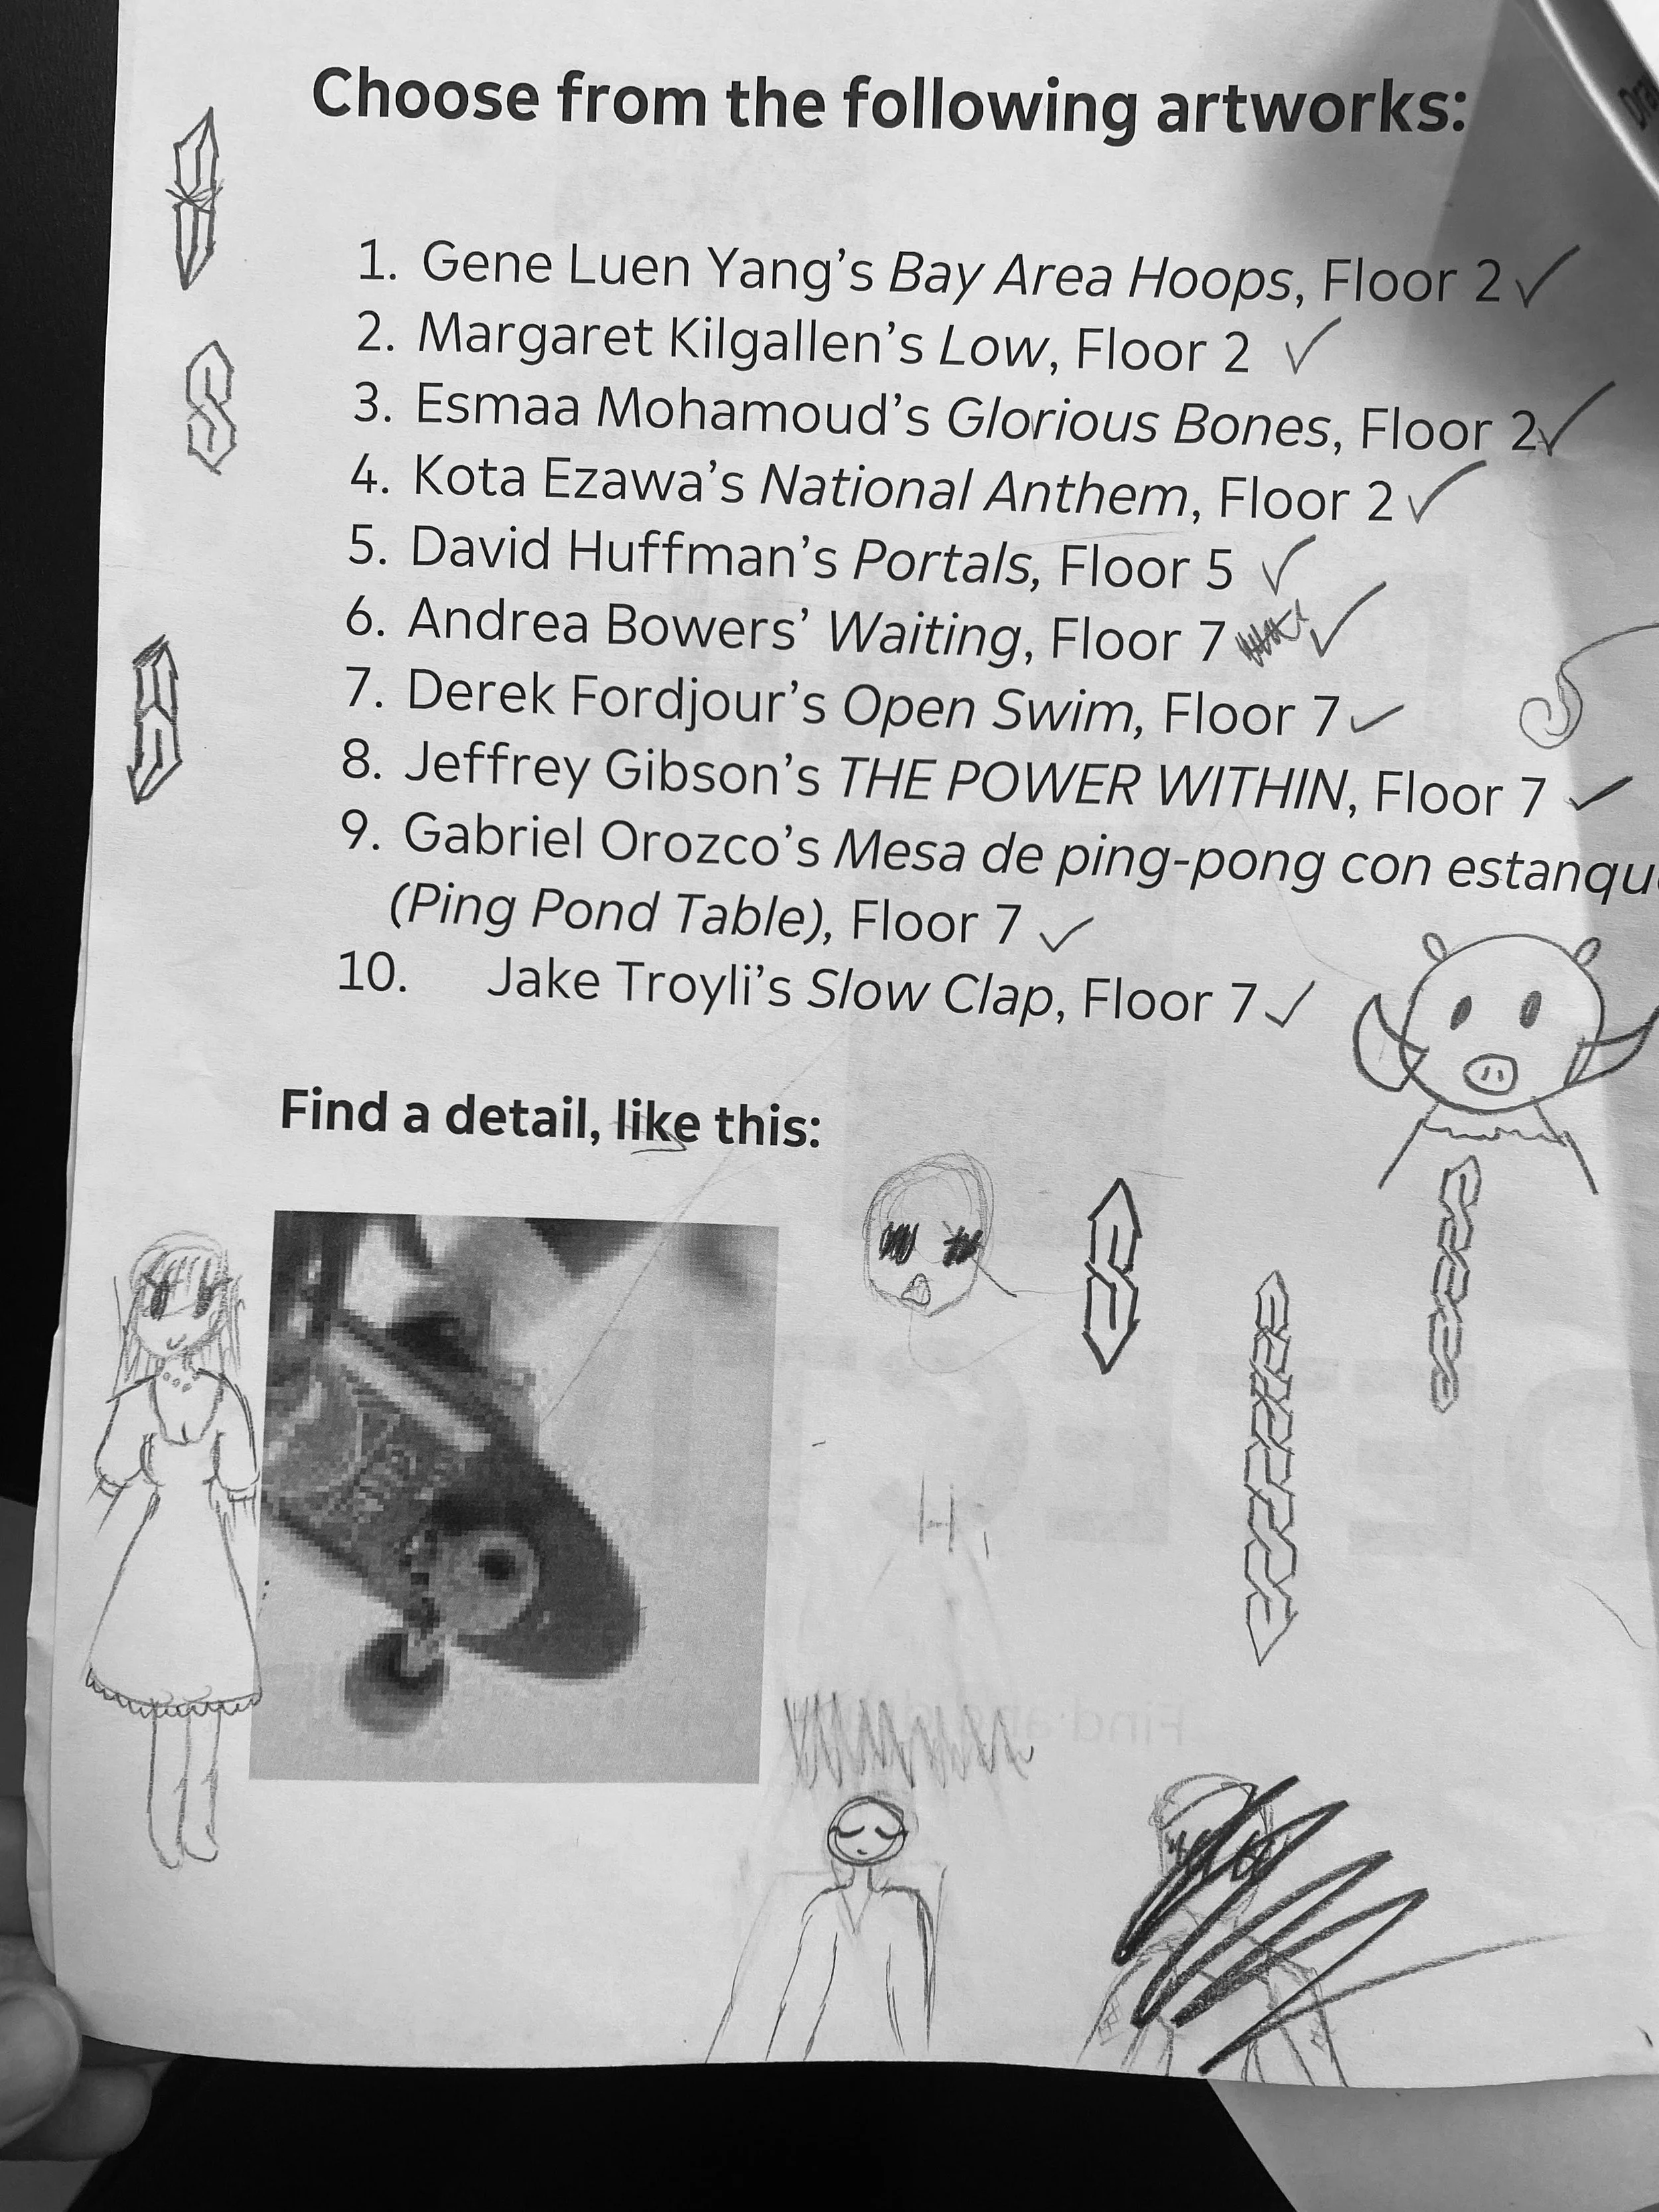 Choose from the following artworks:
1. Gene Luen Yang's Bay Area Hoops, Floor 2
2. Margaret Kilgallen's Low, Floor 2
3. Esmaa Mohamoud's Glorious Bones, Floor 2
4. Kota Ezawa's National Anthem, Floor 2
5. David Huffman's Portals, Floor 5
6. Andrea Bowers' Waiting, Floor 7
7. Derek Fordjour's Open Swim, Floor 7
8. Jeffrey Gibson's THE POWER WITHIN, Floor 7
9. Gabriel Orozco's Mesa de ping-pong con estanqu
(Ping Pond Table), Floor 7
10. Jake Troyli's Slow Clap, Floor 7
Find a detail, like this: